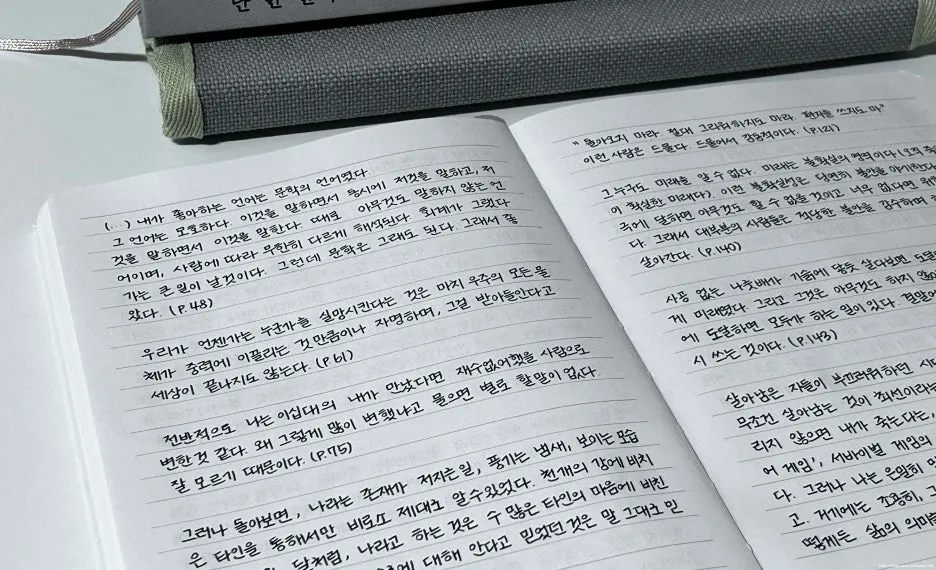 (...) 내가 좋아하는 언어는 문학의 언어였다
그 언어는 모호하다. 이것을 말하면서 동시에 저것을 말하고, 저
것을 말하면서 이것을 말한다. 때로 아무것도 말하지 않는 언
어이며, 사람에 따라 무한히 다르게 해석된다. 회계가 그랬다
가는 큰 일이 날것이다. 그런데 문학은 그래도 된다. 그래서 좋
았다. (P.48)
우리가 언젠가는 누군가를 실망시킨다는 것은 마치 우주의 모든 물
체가 중력에 이끌리는 것만큼이나 자명하며, 그걸 받아들인다고
세상이 끝나지도 않는다. (P.61)
전반적으로 나는 이십대의 내가 만났다면 재수없어했을 사람으로
변한 것 같다. 왜 그렇게 많이 변했냐고 물으면 별로 할말이 없다.
잘 모르기 때문이다. (P.75)
그러나 돌아보면, 나라는 존재가 저지른 일, 풍기는 냄새, 보이는 모습
은 타인을 통해서만 비로소 제대로 알 수 있었다. 천 개의 강에 비치
달처럼, 나라고 하는 것은 수 많은 타인의 마음에 비친
에 대해 안다고 믿었던 것은 말 그대로 믿
"돌아오지 마라. 절대 그리워하지도 마라. 편지를 쓰지도 마"
이런 사람은 드물다. 드물어서 감동적이다. (P.121)
그 누구도 미래를 알 수 없다. 미래는 불확실의 영역이다 (오직
이 확실한 미래다). 이런 불확실성은 당연히 불안을 야기한다
극에 달하면 아무것도 할 수 없을 것이고 너무 없다면 위험
다. 그래서 대부분의 사람들은 적당한 불안을 감수하며
살아간다. (P.140)
사공 없는 나룻배가 기슭에 닿듯 살다보면 도달
게 미래였다. 그리고 그것은 아무것도 하지 않아
에 도달하면 모두가 하는 일이 있다.
시 쓰는 것이다. (P.143)
살아남은 자들이 부끄러워하던 시
무조건 살아남는 것이 최선이라는
리지 않으면 내가 죽는다는,
어 게임', 서바이벌 게임의
다. 그러나 나는 은밀히
고. 거기에는 조금히,
떻게든 삶의 의미